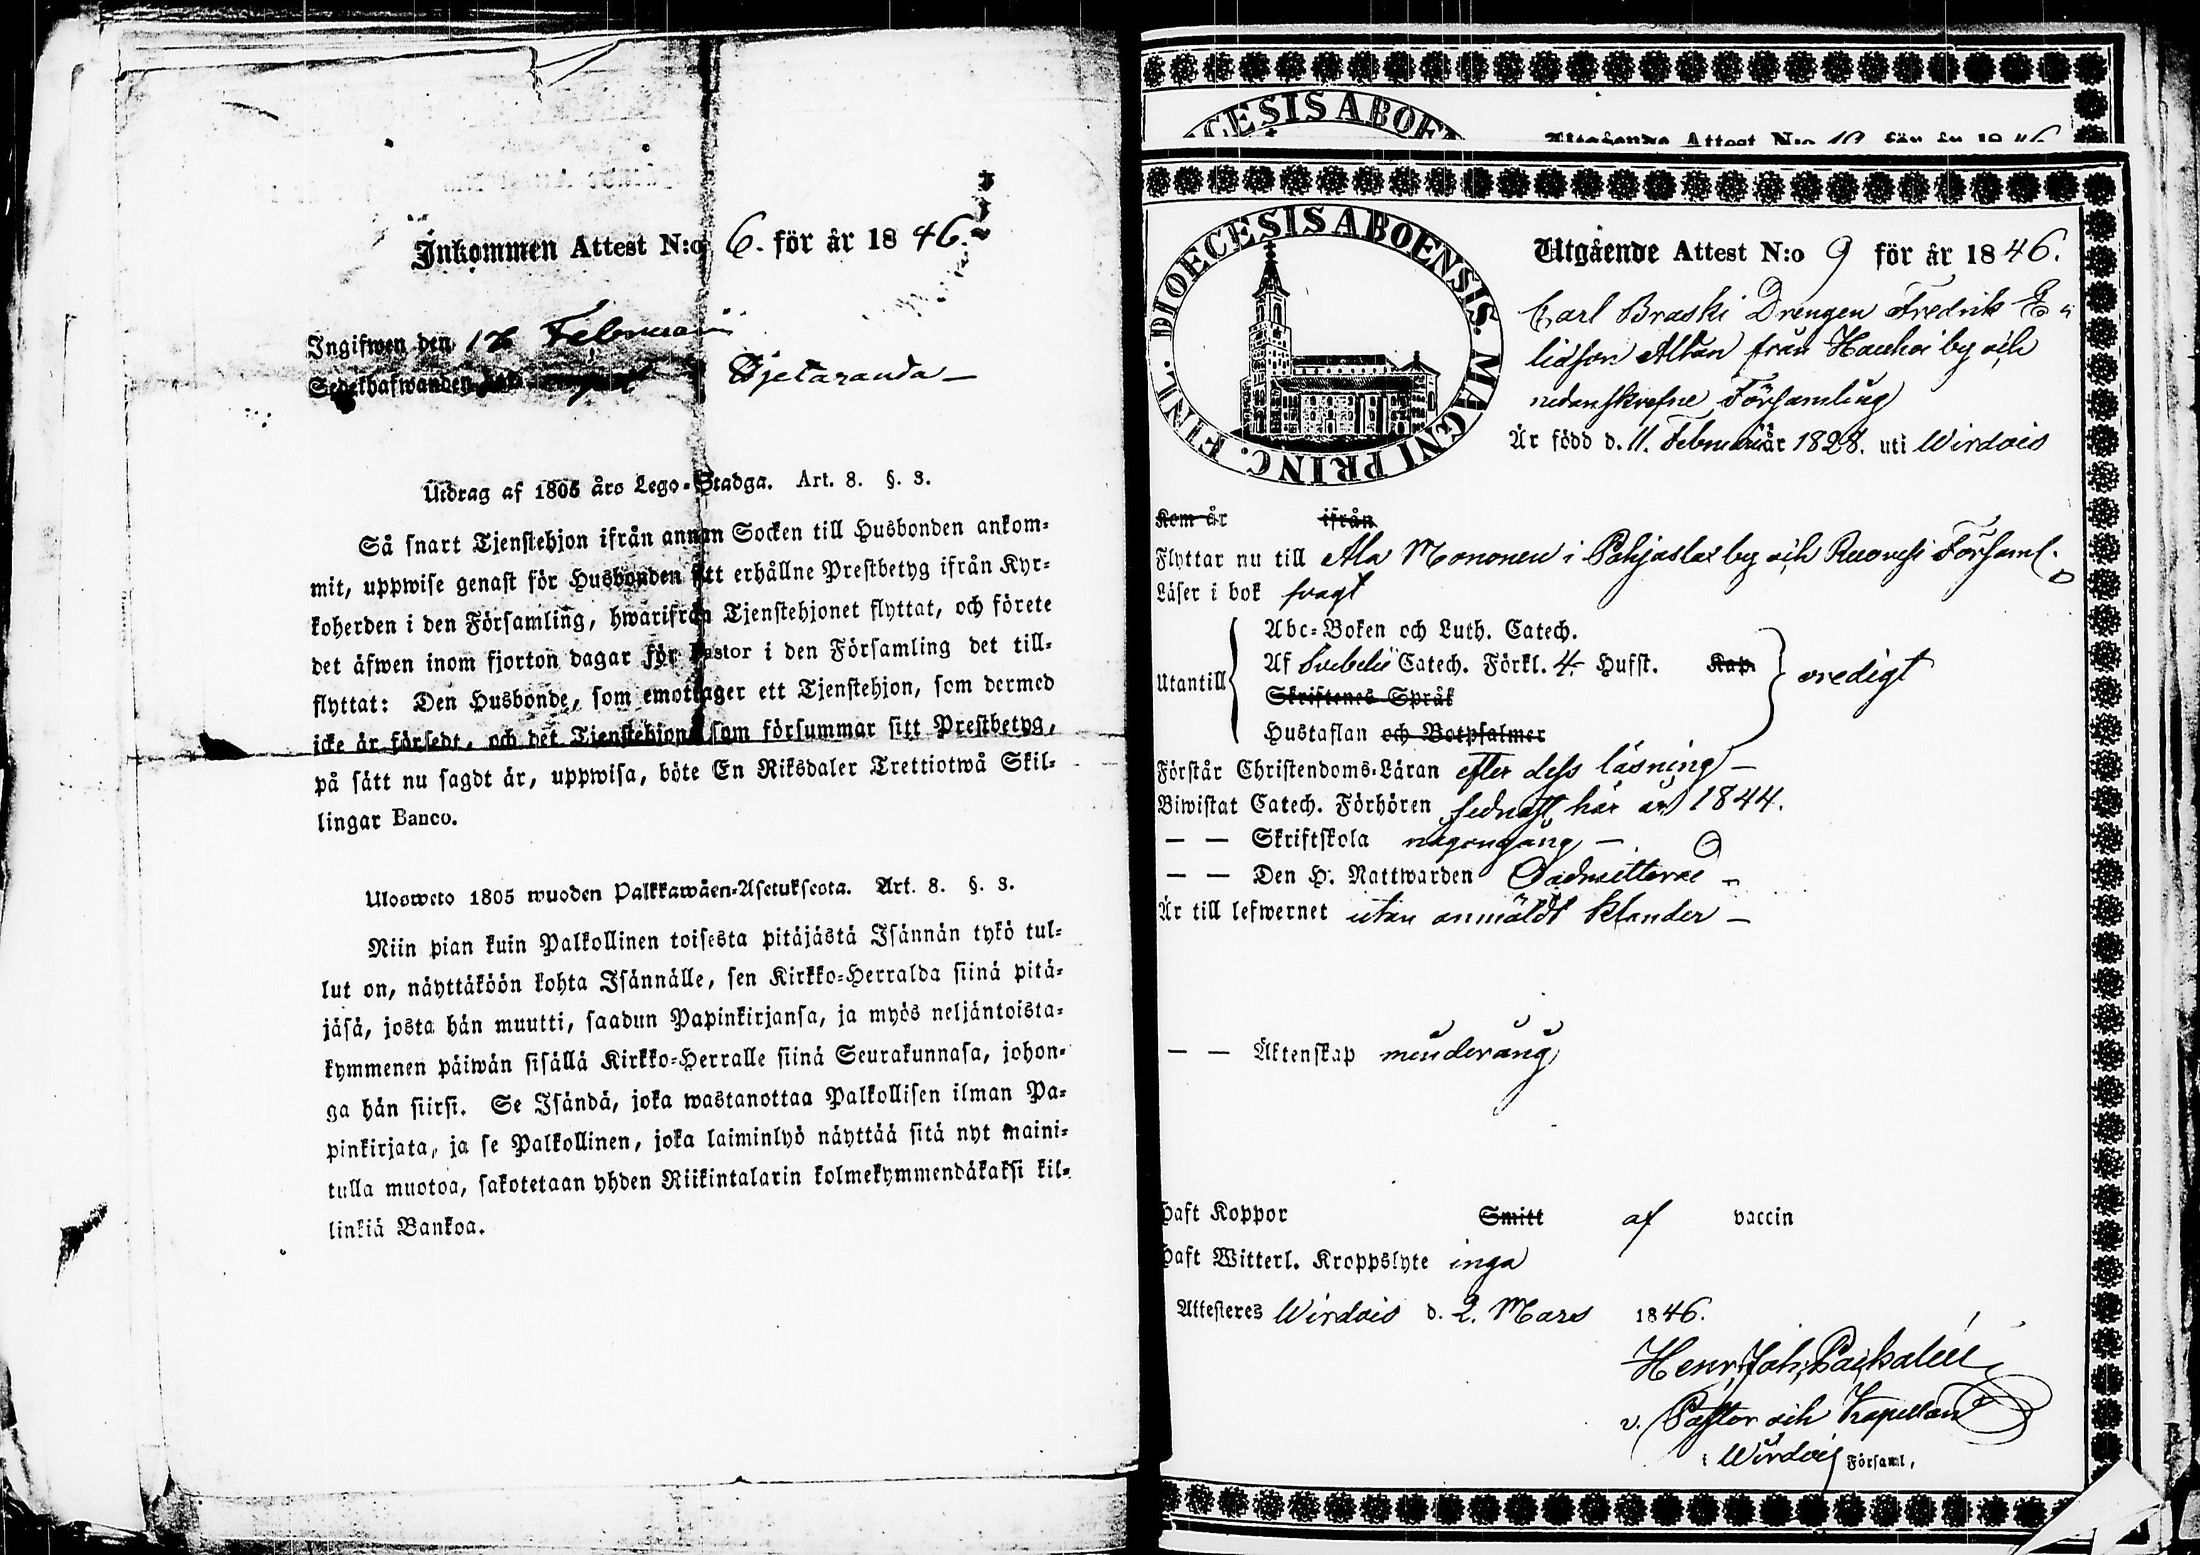 Inkommen Attest N:o 6. för år 1846.
Ingifwen den 12 Februari
Sedelhafwanden
Utdrag af 1805 års Lego-Stadga. Art. 8. §. 3.
Så snart Tjenstehjon ifrån annan Socken till Husbonden ankom-
mit, uppwise genast för Husbonden sitt erhållne Prestbetyg ifrån Kyr-
koherden i den Församling, hwarifrån Tjenstehjonet flyttat, och förete
det äfwen inom fjorton dagar för Pastor i den Församling det till-
flyttat: Den Husbonde, som emottager ett Tjenstehjon, som dermed
icke är försedt, och det Tjenstehjon, som försummar sitt Prestbetyg,
på sätt nu sagdt är, uppwisa, böte En Riksdaler Trettiotwå Skil-
lingar Banco.
Ulosweto 1805 wuoden Palkkawäen-Asetuksesta. Art. 8. §. 3.
Niin pian kuin Palkollinen toisesta pitäjästä Isännän tykö tul-
lut on, näyttäköön kohta Isännälle, sen Kirkko-Herralda siinä pitä-
jäsä, josta hän muutti, saadun Papinkirjansa, ja myös neljäntoista-
kymmenen päiwän sisällä Kirkko-Herralle siinä Seurakunnasa, johon-
ga hän siirsi. Se Isändä, joka wastanottaa Palkollisen ilman Pa-
pinkirjata, ja se Palkollinen, joka laiminlyö näyttää sitä nyt maini-
tulla muotoa, sakotetaan yhden Riikintalarin kolmekymmendäkaksi kil-
linkiä Bankoa.
CESIS ABOE
Utgående Attest N:o 10 för år 1846
DIOECESIS ABOENSIS. MAGNI PRINC. FINL.
Utgående Attest N:o 9 för år 1846.
Carl Braski Drengen Fredrik E
från by och
nedanskrefne Församling
Är född d. 11. Februari år 1828. uti Wirdois
Kom år ifrån
Flyttar nu till Ala Mononen i by och Ruovesi Församl.
Läser i bok svagt
Utantill
Abc-Boken och Luth. Catech.
Af Svebelii Catech. Förkl. 4. Hufst. Kap.
Skriftenes Språk
Hustaflan och Botpsalmer
oredigt
Förstår Christendoms-Läran efter dess läsning —
Biwistat Catech. Förhören sednast här år 1844.
— — Skriftskola någongång —
— — Den H. Nattwarden Oadmitterad —
Är till lefwernet utan anmäldt klander —
— — Äktenskap minderårig
Haft Koppor Smitt af vaccin
Haft Witterl. Kroppslyte inga
Attesteres Wirdois d. 2. Mars 1846.
Henr. Joh.
v. Pastor och Kapellan
i Wirdois Församl,